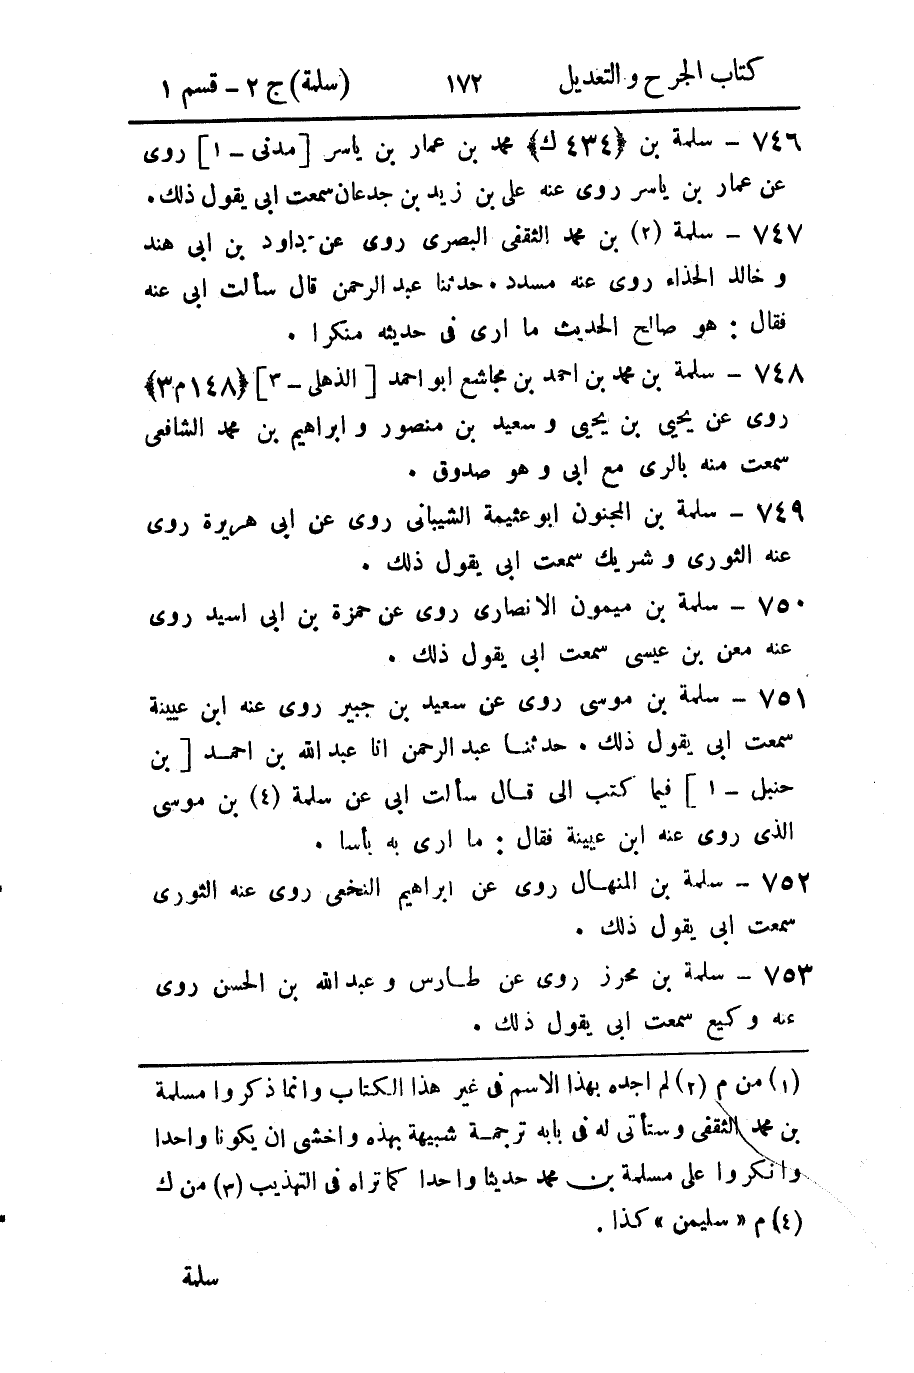 كتاب الجرح والتعديل ١٧٢ (سلمة) ج ٢ - قسم ١
٧٤٦ - سلمة بن ﴿٤٣٤ ك﴾ محمد بن عمار بن ياسر [مدنى - ١] روى
عن عمار بن ياسر روى عنه على بن زيد بن جدعان سمعت ابى يقول ذلك .
٧٤٧ - سلمة (٢) بن محمد الثقفى البصرى روى عن داود بن ابى هند
و خالد الحذاء روى عنه مسدد . حدثنا عبد الرحمن قال سألت ابى عنه
فقال : هو صالح الحديث ما ارى فى حديثه منكرا .
٧٤٨ - سلمة بن محمد بن احمد بن مجاشع ابو احمد [ الذهلى - ٣ ] ﴿١٤٨ م ٣﴾
روى عن يحيي بن يحيي و سعيد بن منصور و ابراهيم بن محمد الشافعى
سمعت منه بالرى مع ابى و هو صدوق .
٧٤٩ - سلمة بن المجنون ابو عثيمة الشيبانى روى عن ابى هريرة روى
عنه الثورى و شريك سمعت ابى يقول ذلك .
٧٥٠ - سلمة بن ميمون الانصارى روى عن حمزة بن ابى اسيد روى
عنه معن بن عيسى سمعت ابى يقول ذلك .
٧٥١ - سلمة بن موسى روى عن سعيد بن جبير روى عنه ابن عيينة
سمعت ابى يقول ذلك . حدثنا عبد الرحمن انا عبد الله بن احمد [ بن
حنبل - ١ ] فيما كتب الى قال سألت ابى عن سلمة (٤) بن موسى
الذى روى عنه ابن عيينة فقال : ما ارى به بأسا .
٧٥٢ - سلمة بن المنهال روى عن ابراهيم النخعى روى عنه الثورى
سمعت ابى يقول ذلك .
٧٥٣ - سلمة بن محرز روى عن طاوس و عبد الله بن الحسن روى
عنه وكيع سمعت ابى يقول ذلك .
(١) من م (٢) لم اجده بهذا الاسم فى غير هذا الكتاب وانما ذكروا مسلمة
بن محمد الثقفى وستأتى له فى بابه ترجمة شبيهة بهذه واخشى ان يكونا واحدا
وانكروا على مسلمة بن محمد حديثا واحدا كما تراه فى التهذيب (٣) من ك
(٤) م « سليمن » كذا .
سلمة